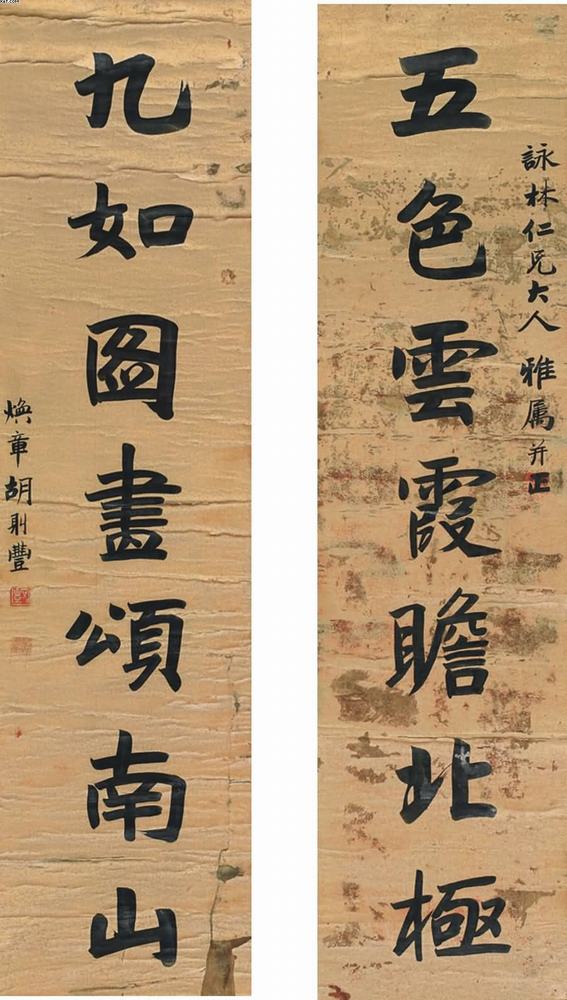 詠林仁兄大人雅属并正
五色雲霞瞻北極
九如圖畫頌南山
煥章胡則豐